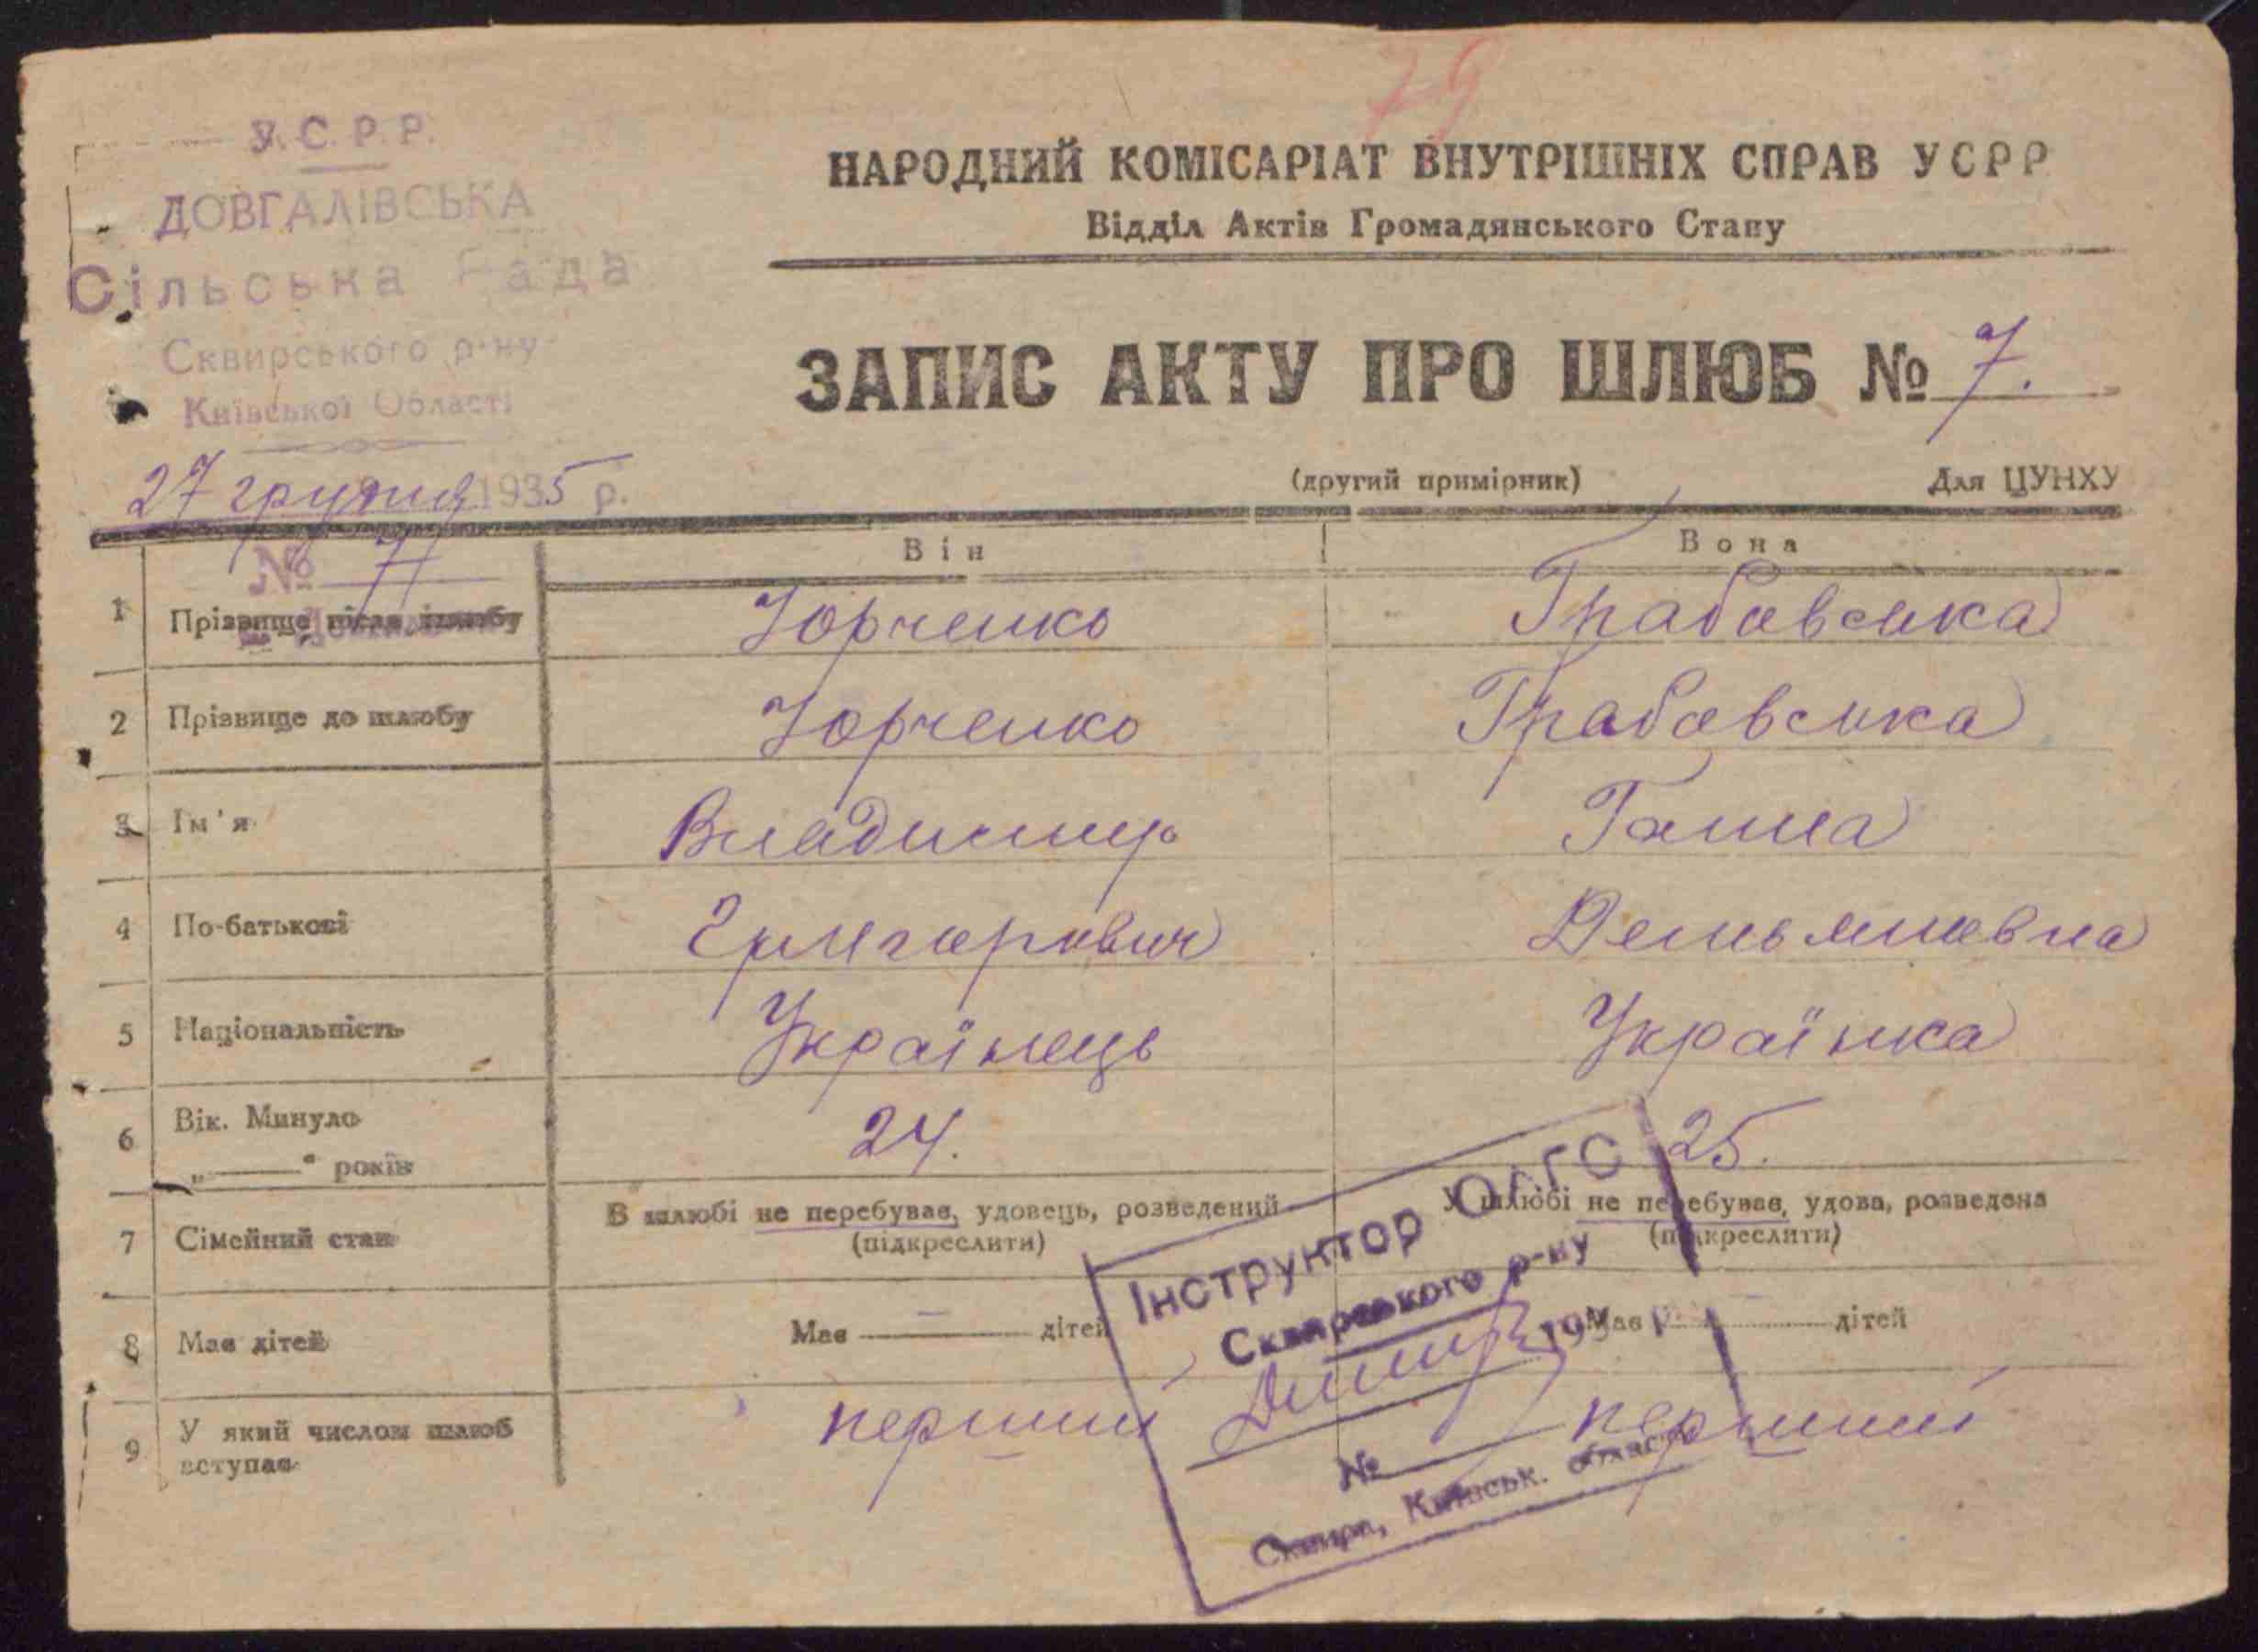 79
У.С.Р.Р.
ДОВГАЛІВСЬКА
Сільська Рада
Сквирського р-ну
Київської Області
27 грудня 1935 р.
№ 7
НАРОДНИЙ КОМІСАРІАТ ВНУТРІШНІХ СПРАВ УСРР
Відділ Актів Громадянського Стану
ЗАПИС АКТУ ПРО ШЛЮБ № 7.
(другий примірник) Для ЦУНХУ
Він Вона
1 Прізвище після шлюбу Юрченко Грабовська
2 Прізвище до шлюбу Юрченко Грабовська
3 Ім'я Владимир Ганна
4 По-батькові Григорович Демьяновна
5 Національність Українець Українка
6 Вік. Минуло 24. 25.
„ “ років
7 Сімейний стан В шлюбі не перебував, удовець, розведений У шлюбі не перебував, удова, розведена
(підкреслити) (підкреслити)
8 Має дітей Має — дітей Має — дітей
9 У який числом шлюб перший перший
вступає
Інструктор ОАГС
Сквирського р-ну
193
№
Сквира, Київськ. області